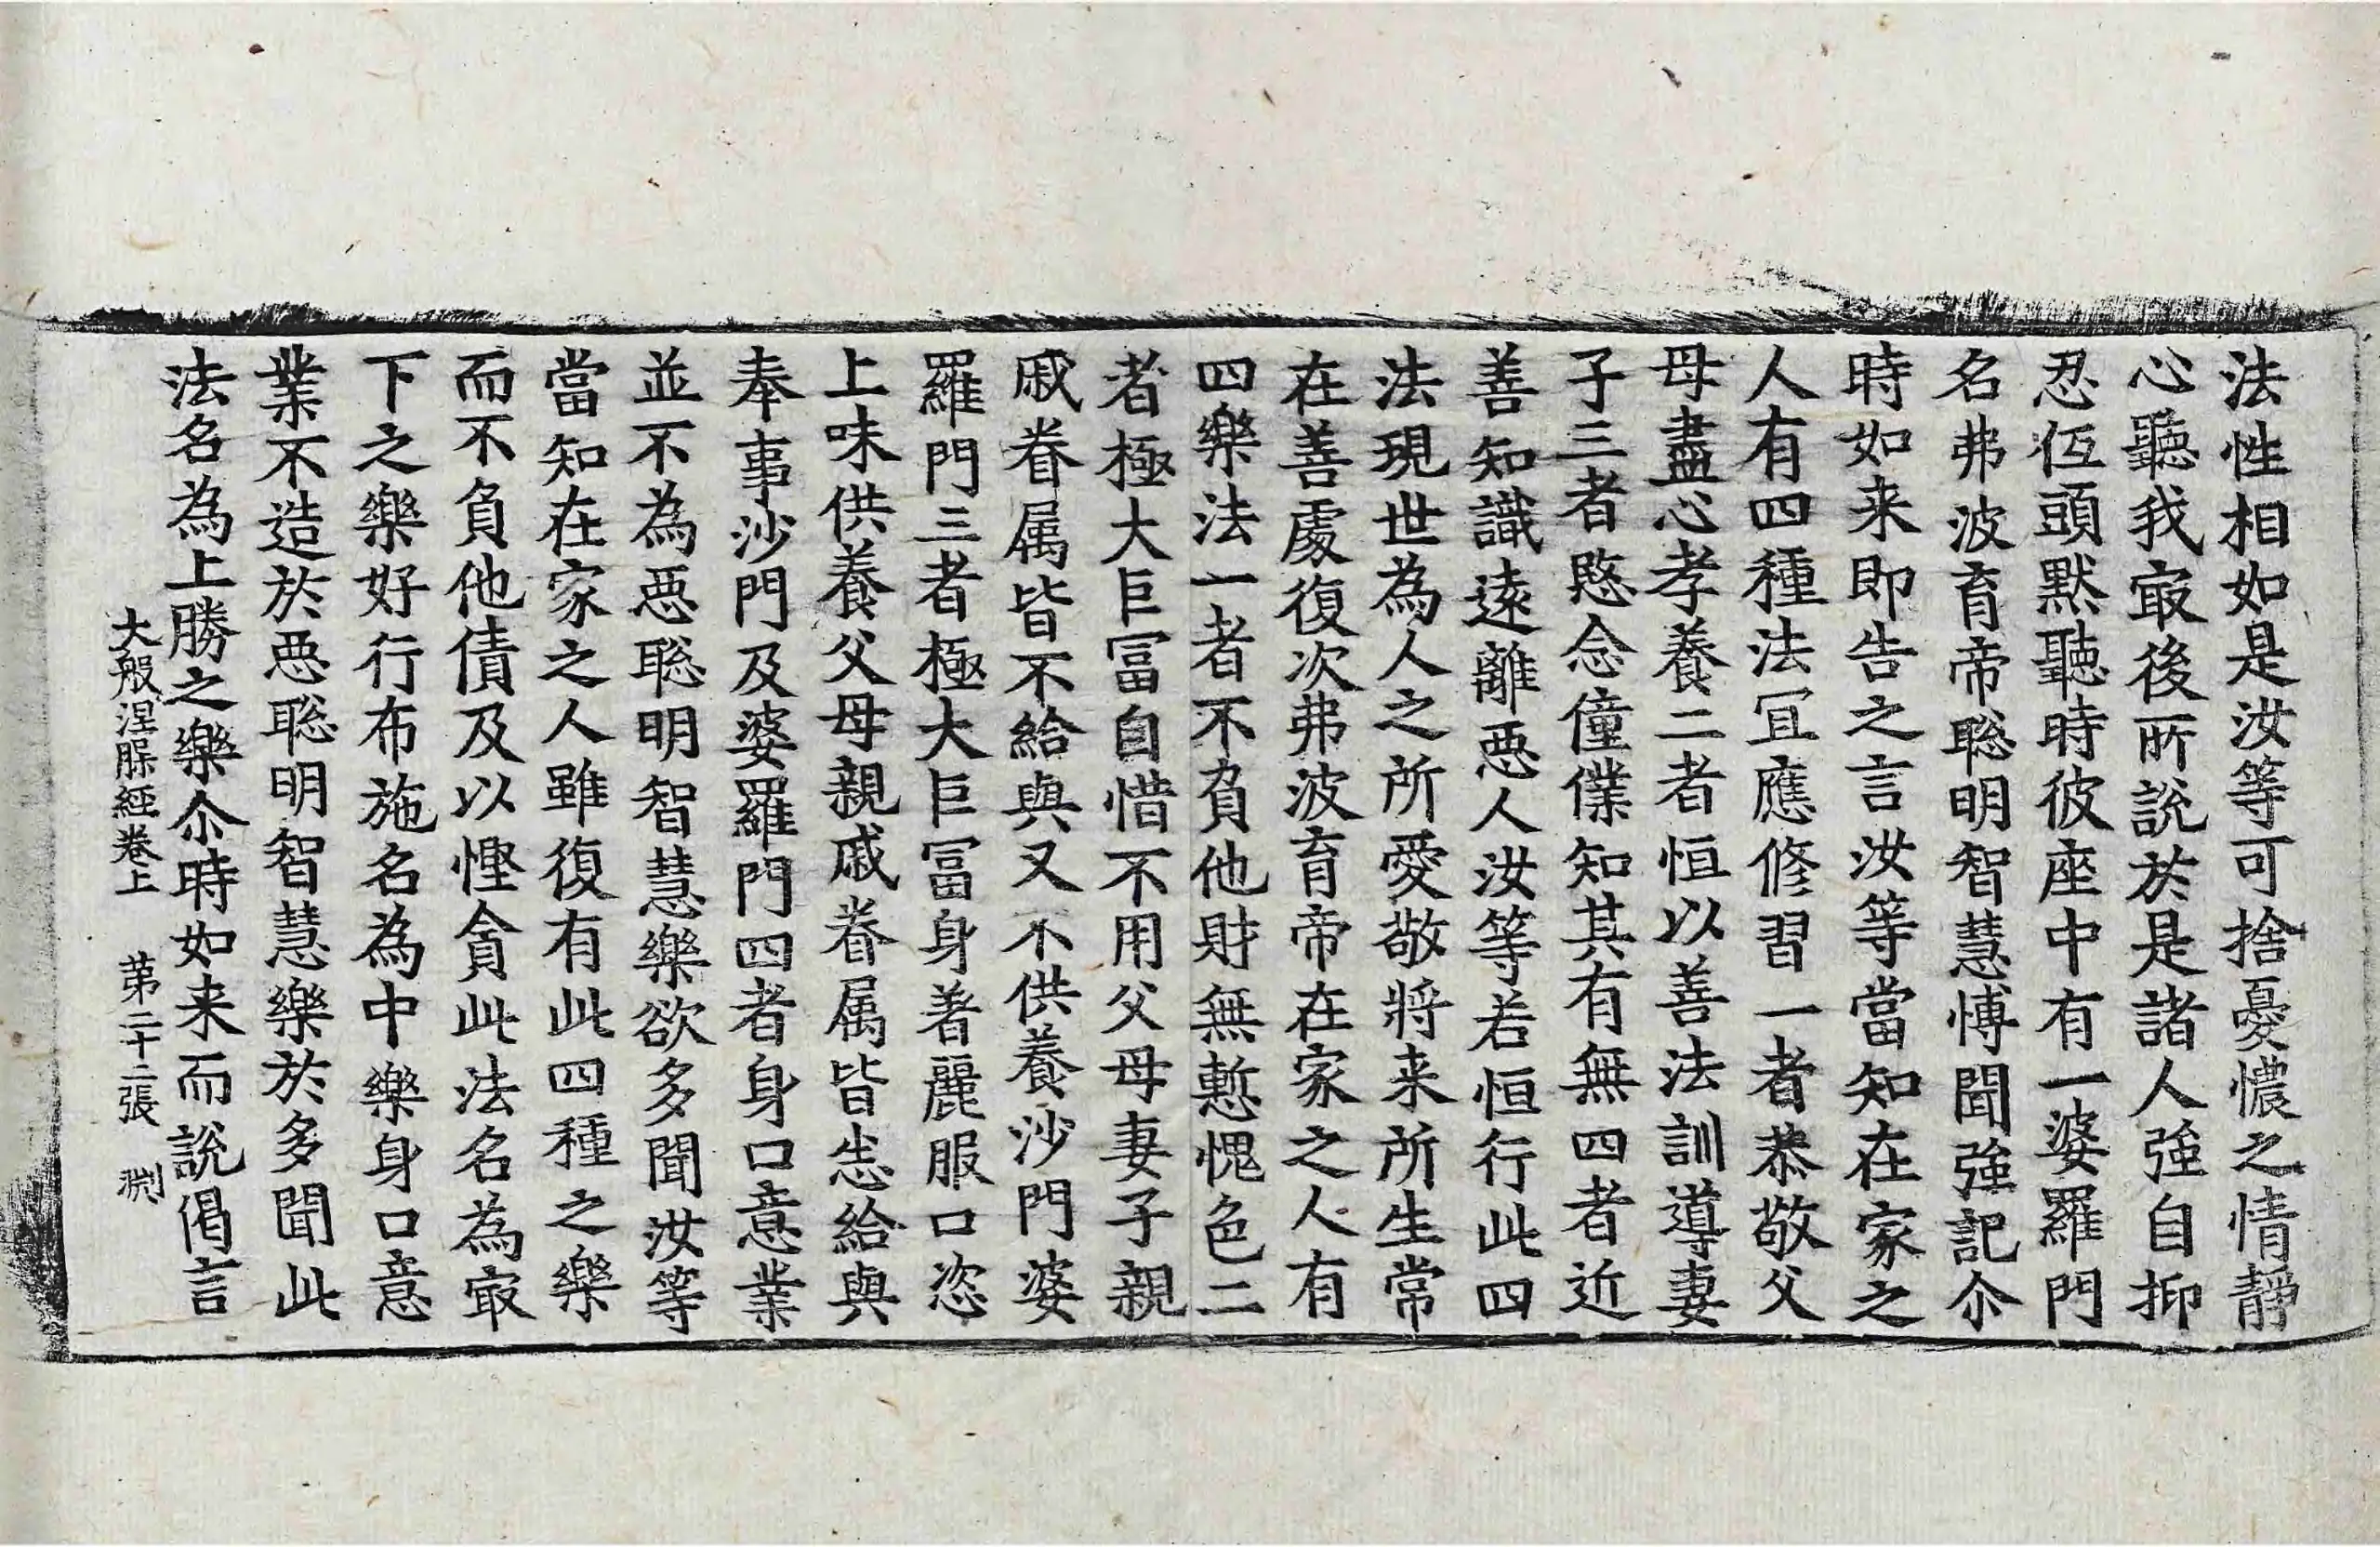 法性相如是汝等可捨憂憹之情靜
心聽我㝡後所說於是諸人強自抑
忍伍頭默聽時彼座中有一婆羅門
名弗波育帝聡明智慧博聞強記尒
時如来即告之言汝等當知在家之
人有四種法冝應修習一者恭敬父
母盡心孝養二者恒以善法訓導妻
子三者愍念僮僕知其有無四者近
善知識遠離惡人汝等若恒行此四
法現世為人之所愛敬將来所生常
在善處復次弗波育帝在家之人有
四樂法一者不負他財無慙愧色二
者極大巨冨自惜不用父母妻子親
戚眷属皆不給與又不供養沙門婆
羅門三者極大巨冨身著麗服口恣
上味供養父母親戚眷属皆悉給與
奉事沙門及婆羅門四者身口意業
並不為惡聡明智慧樂欲多聞汝等
當知在家之人雖復有此四種之樂
而不負他債及以慳貪此法名為㝡
下之樂好行布施名為中樂身口意
業不造於惡聡明智慧樂於多聞此
法名為上勝之樂尒時如来而說偈言
大般涅槃經卷上 第二十二張 渕